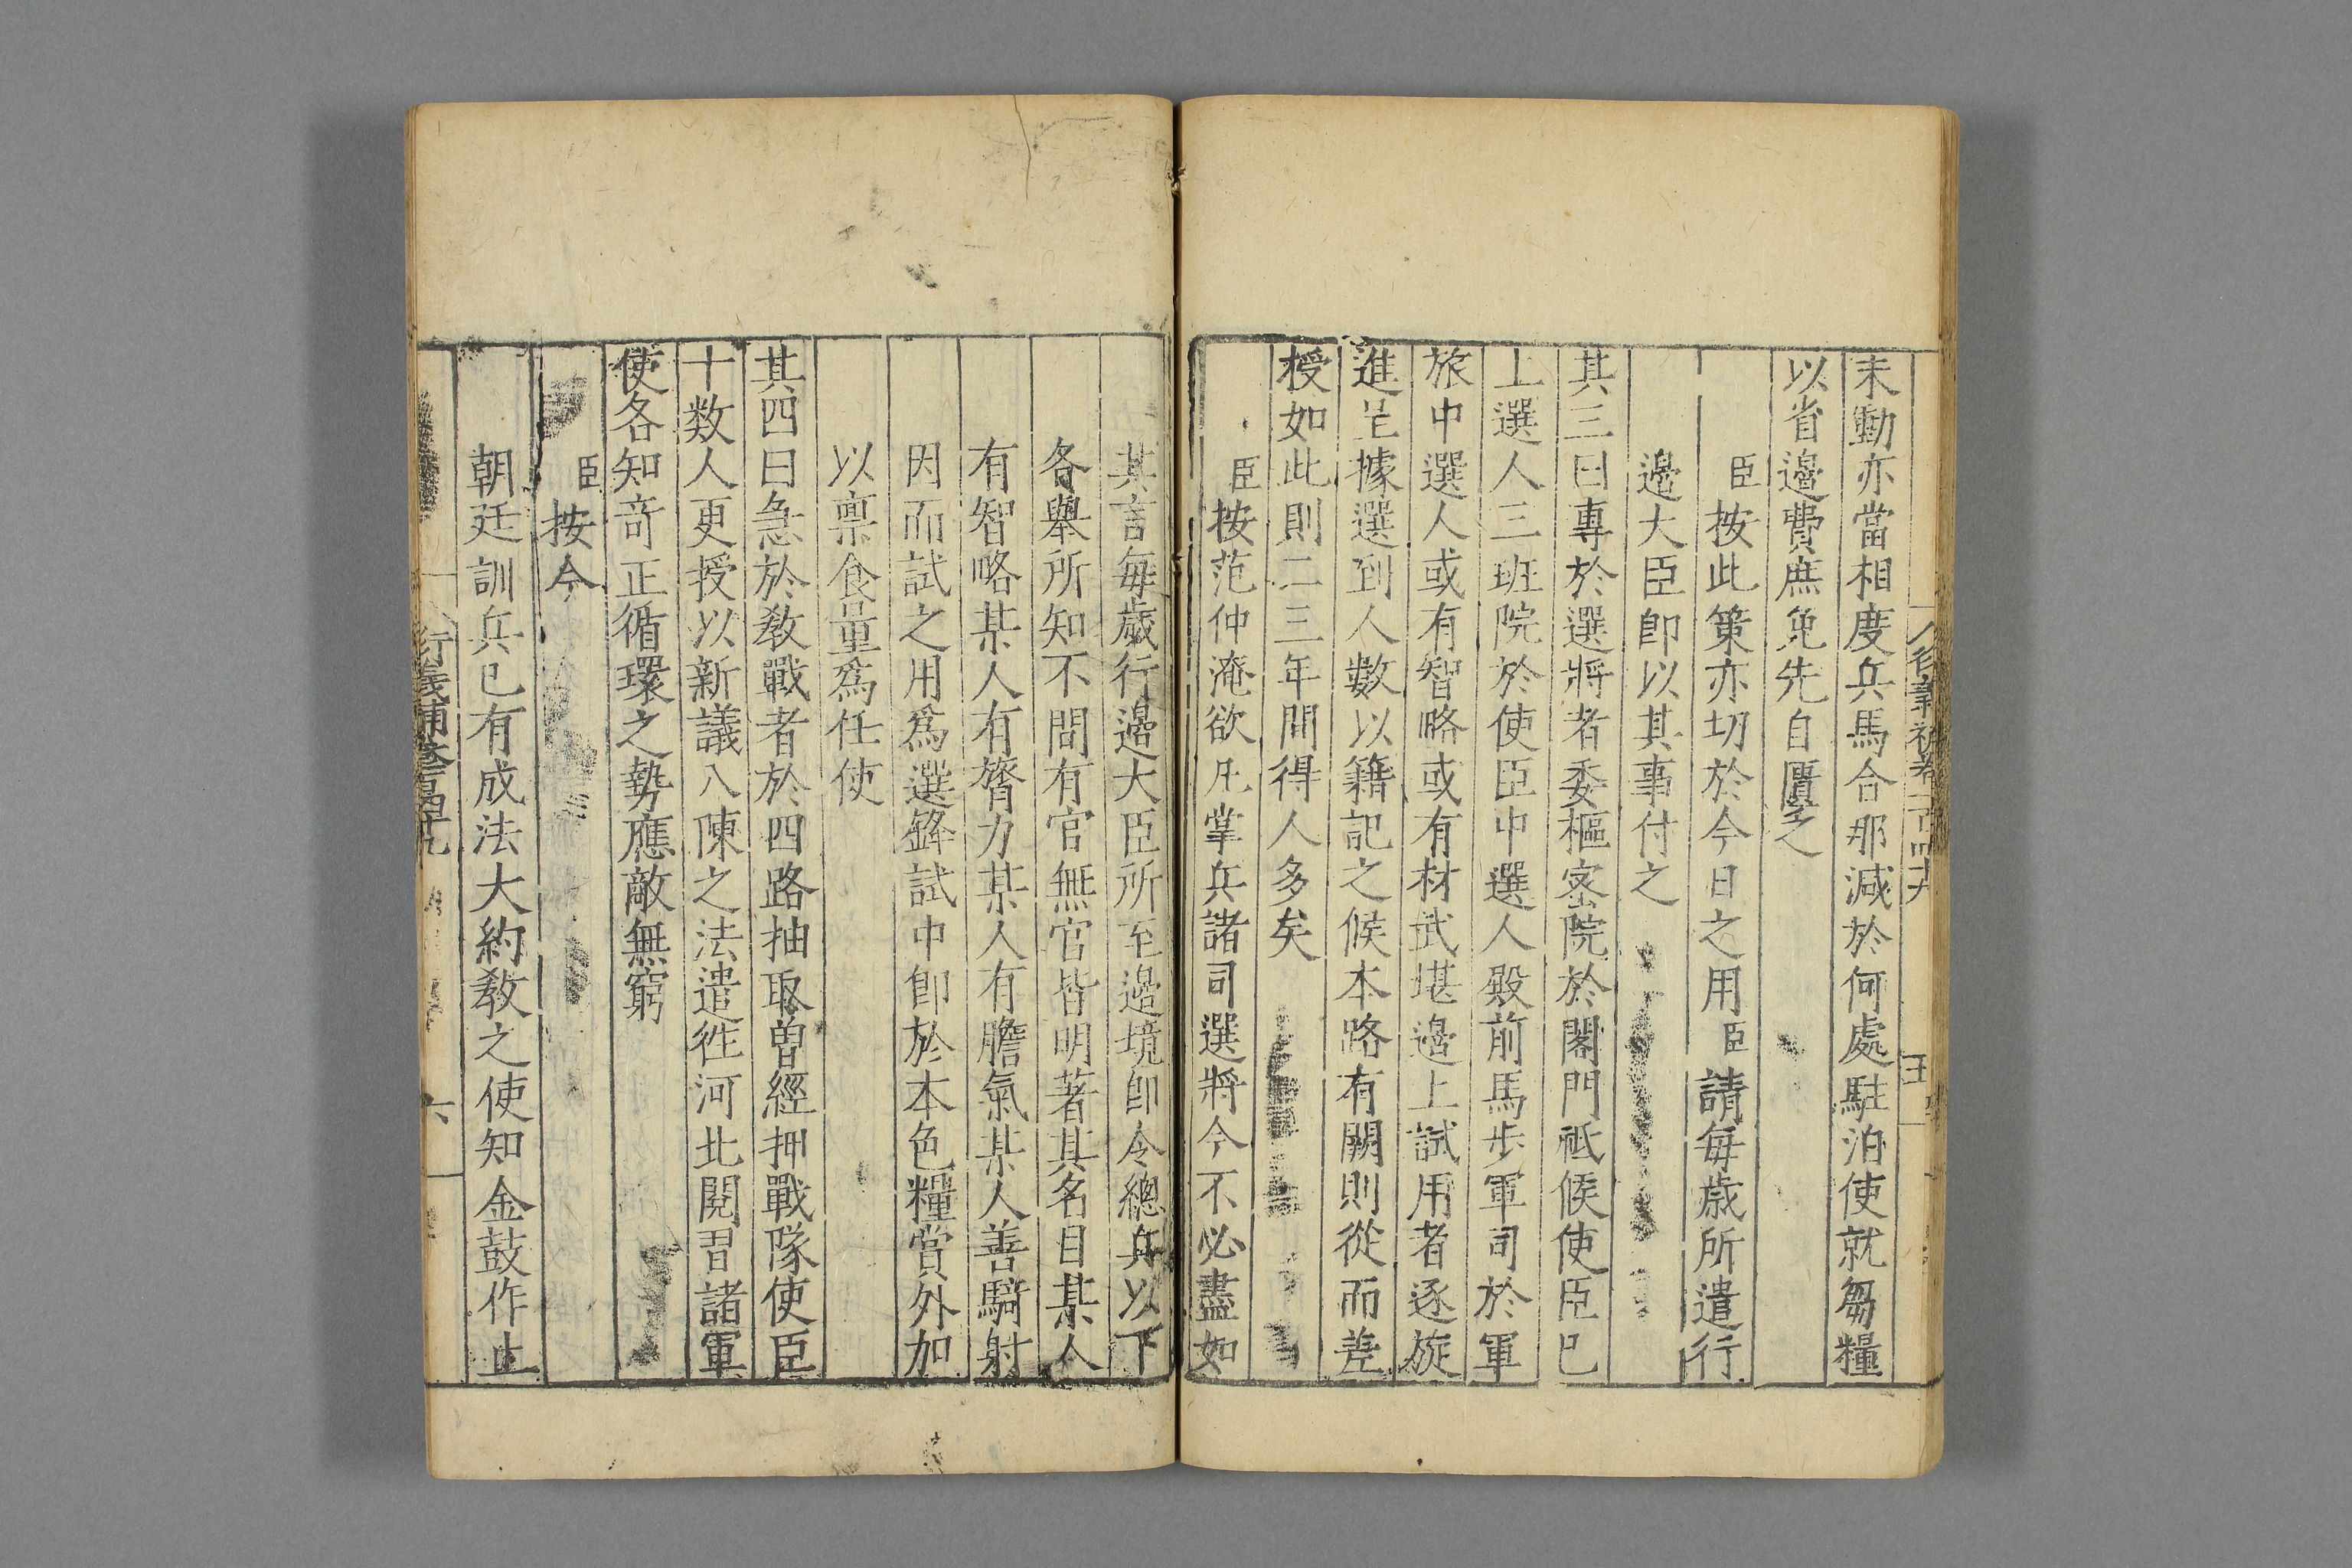 未動亦當相度兵馬合那減於何處駐泊使就芻糧
以省邉費庶免先自匱乏
臣按此策亦切於今日之用臣請毎歳所遣行
邉大臣即以其事付之
其三曰專於選將者委樞宻院於閣門祗候使臣已
上選人三班院於使臣中選人殿前馬歩軍司於軍
旅中選人或有智略或有材武堪邉上試用者逐旋
進呈據選到人數以籍記之候本路有闕則從而差
授如此則二三年間得人多矣
臣按范仲淹欲凡掌兵諸司選將今不必盡如
其言毎歳行邉大臣所至邉境即令總兵以下
各舉所知不問有官無官皆明著其名目某人
有智略某人有膂力某人有膽氣某人善騎射
因而試之用爲選鋒試中即於本色糧賞外加
以禀食量爲任使
其四曰急於敎戰者於四路抽取曽經押戰隊使臣
十数人更授以新議八陳之法遣徃河北閱習諸軍
使各知竒正循環之勢應敵無窮
臣按今
朝廷訓兵已有成法大約敎之使知金鼓作止
衍義補卷百四十九
六